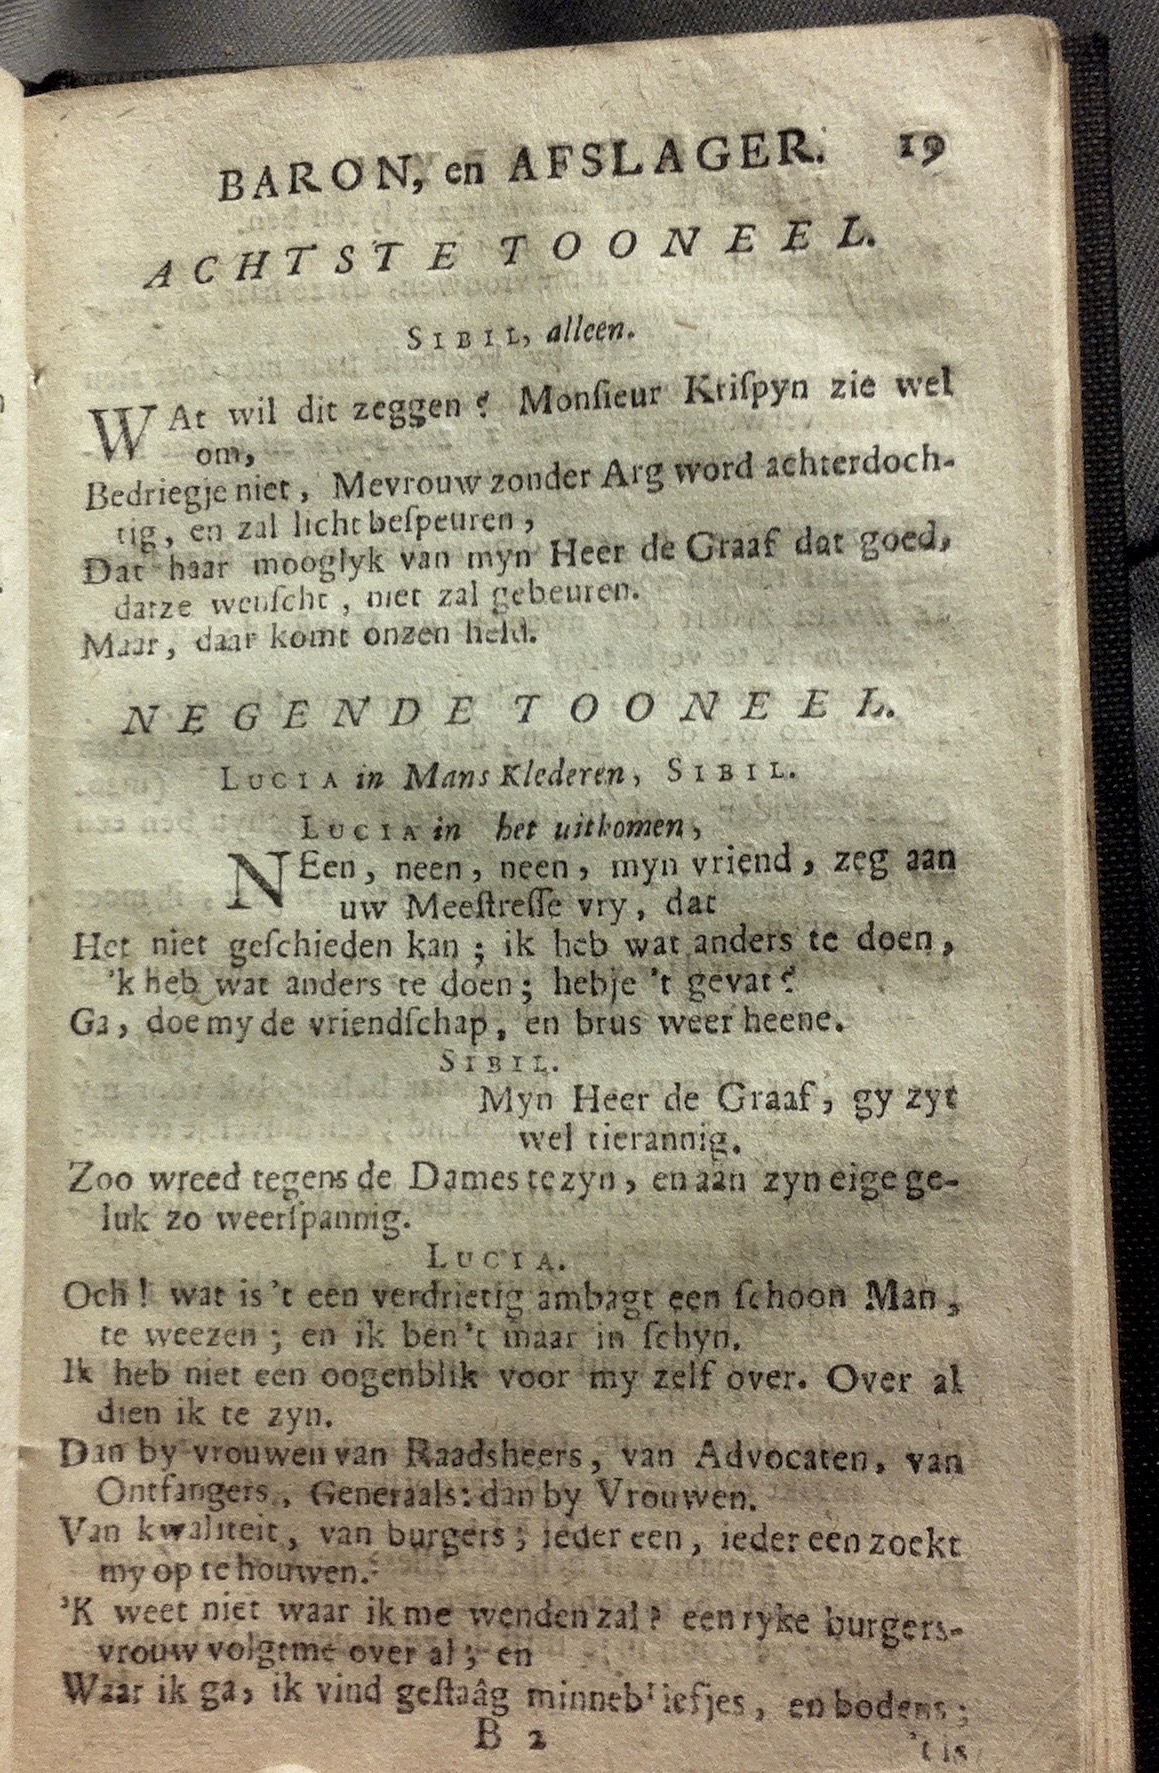 BARON, en AFSLAGER. 19
ACHTSTE TOONEEL.
SIBIL, alleen.
WAt wil dit zeggen? Monſieur Kriſpyn zie wel
om,
Bedriegje niet, Mevrouw zonder Arg word achterdoch-
tig, en zal licht beſpeuren,
Dat haar mooglyk van myn Heer de Graaf dat goed,
datze wenſcht, niet zal gebeuren.
Maar, daar komt onzen held.
NEGENDE TOONEEL.
LUCIA in Mans Klederen, SIBIL.
LUCIA in het uitkomen,
NEen, neen, neen, myn vriend, zeg aan
uw Meeſtreſſe vry, dat
Het niet geſchieden kan; ik heb wat anders te doen,
'k heb wat anders te doen; hebje 't gevat?
Ga, doe my de vriendſchap, en brus weer heene.
SIBIL.
Myn Heer de Graaf, gy zyt
wel tierannig.
Zoo wreed tegens de Dames te zyn, en aan zyn eige ge-
luk zo weerſpannig.
LUCIA.
Och! wat is 't een verdrietig ambagt een ſchoon Man,
te weezen; en ik ben 't maar in ſchyn.
Ik heb niet een oogenblik voor my zelf over. Over al
dien ik te zyn.
Dan by vrouwen van Raadsheers, van Advocaten, van
Ontfangers, Generaals: dan by Vrouwen.
Van kwaliteit, van burgers; ieder een, ieder een zoekt
my op te houwen.
'K weet niet waar ik me wenden zal? een ryke burgers-
vrouw volgt me over al; en
Waar ik ga, ik vind geſtaâg minnebriefjes, en bodens;
B 2
't is